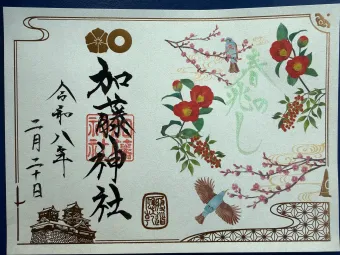 春の
兆し
加藤神社
令和八年
二月二十日